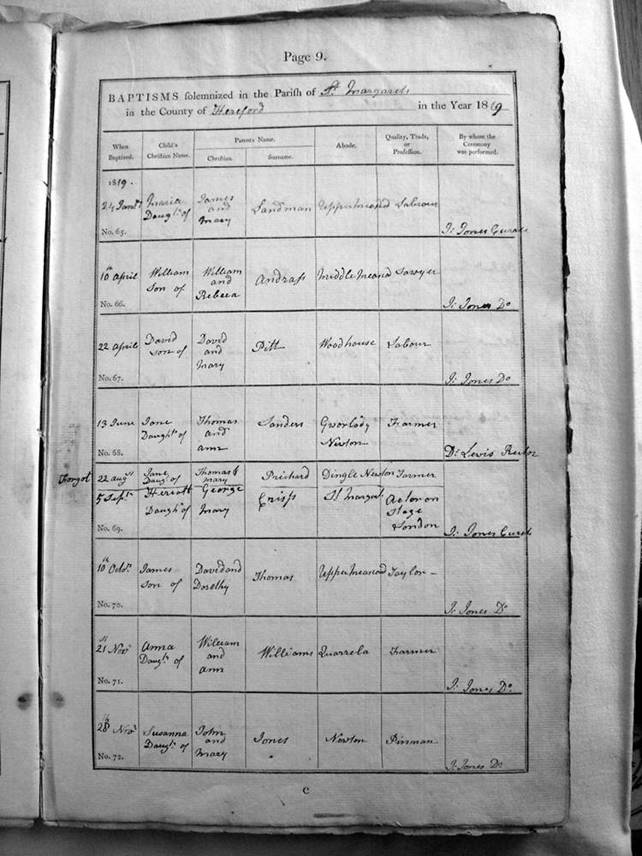 Page 9.
BAPTISMS solemnized in the Parish of St. Margarets
in the County of Hereford in the Year 1819
When Baptized. Child's Christian Name. Parents Name. Christian. Surname. Abode. Quality, Trade, or Profession. By whom the Ceremony was performed.
1819.
24 Janry Maria Daught. of James and Mary Landman Upper Meand Labour
No. 65. J: Jones Curate
10th April William Son of William and Rebeca Andrass Middle Meand Sawyer
No. 66. J: Jones Do
22 April David Son of David and Mary Pitt Woodhouse Labour
No. 67. J: Jones Do
13 June Jane Daught. of Thomas and Ann Sanders Gworlody Newton Farmer
No. 68. D: Lewis Rector
Forgot 22 Augst Jane Daugt. of Thomas & Mary Prichard Dingle Newton Farmer
5 Septr. Herriott Daught. of George Mary Crisp St Margat. Actor on Stage London
No. 69. J: Jones Curate
10th Octr. James Son of David and Dorothy Thomas Upper Meand Taylor
No. 70. J: Jones Do
21st Novr Anna Daught. of William and Ann Williams Quarrela Farmer
No. 71. J: Jones Do.
28th Novr Susanna Daught. of John and Mary Jones Newton Pinman
No. 72. J: Jones Do
C